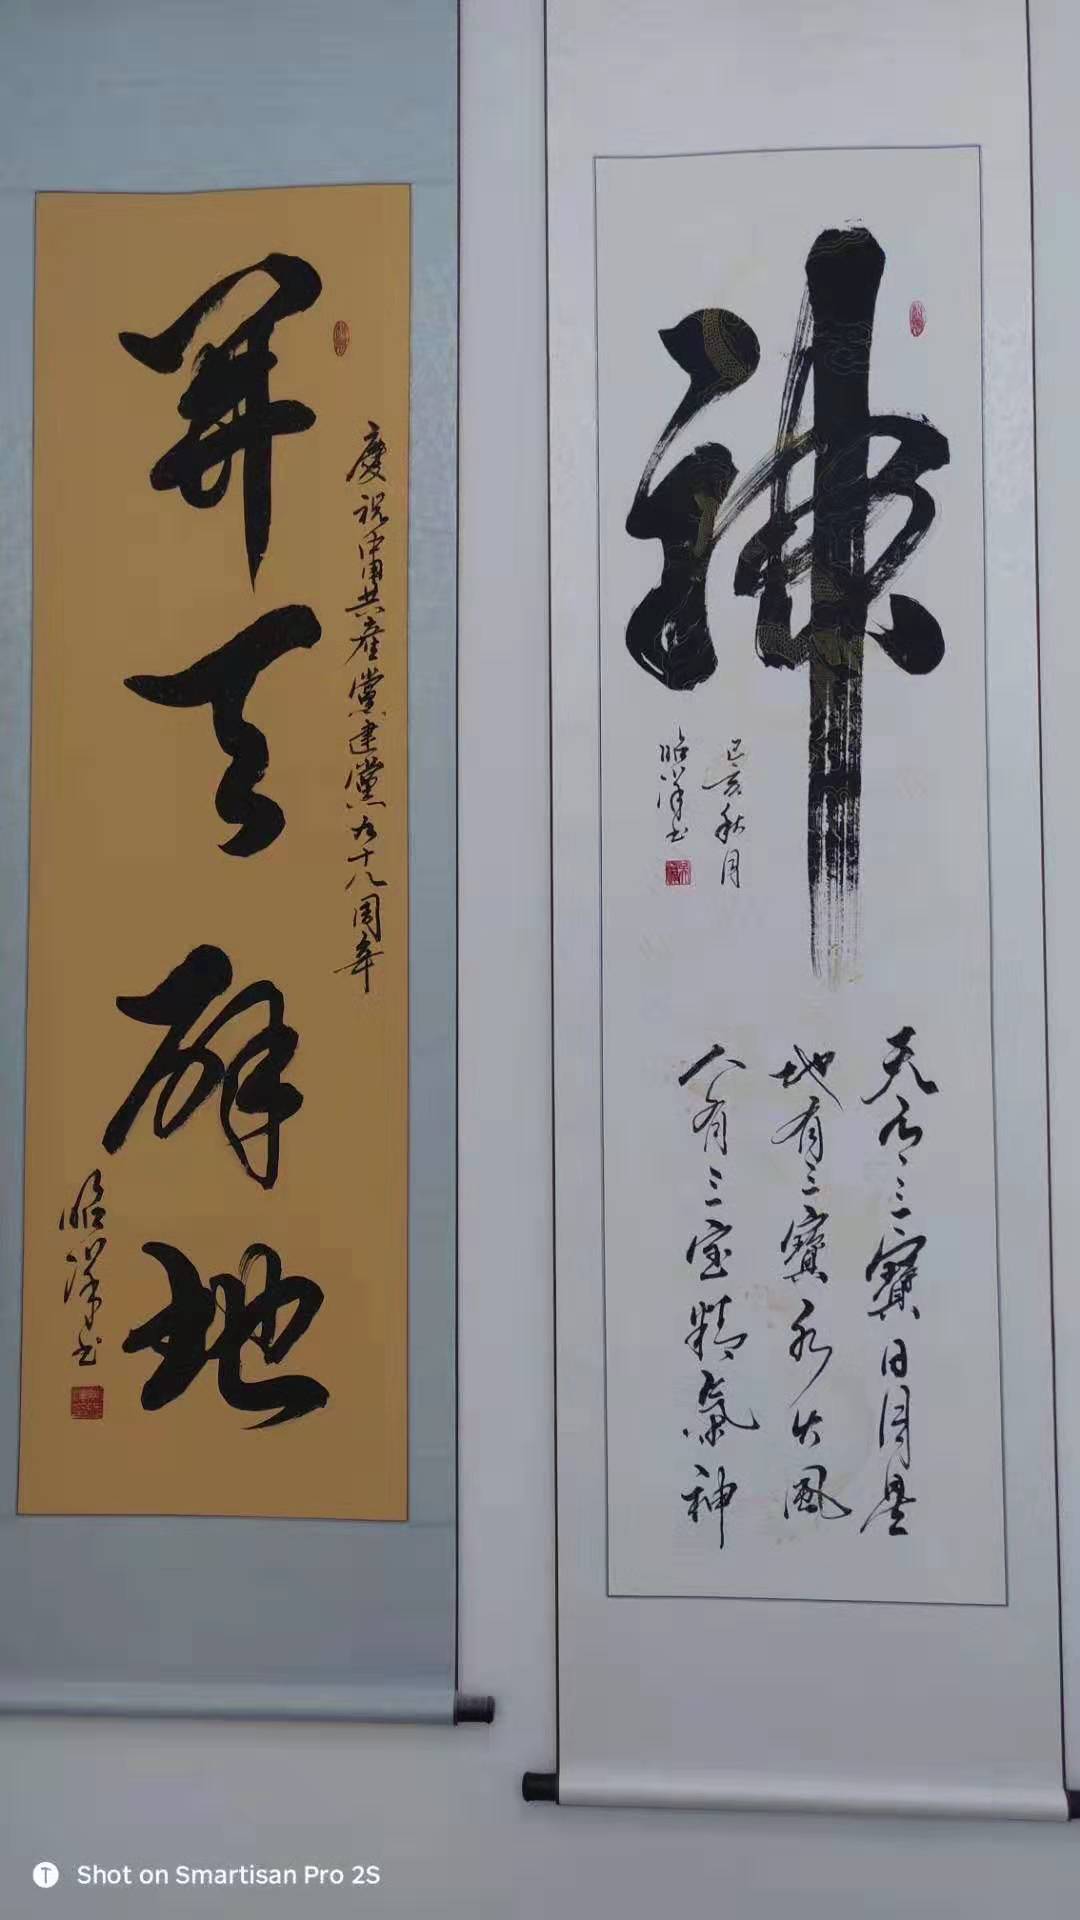 神
己亥秋月
昭洋书
天有三寶日月星
地有三寶水火風
人有三宝精氣神
慶祝中国共產黨建黨九十八周年
開天辟地
昭洋书
Shot on Smartisan Pro 2S